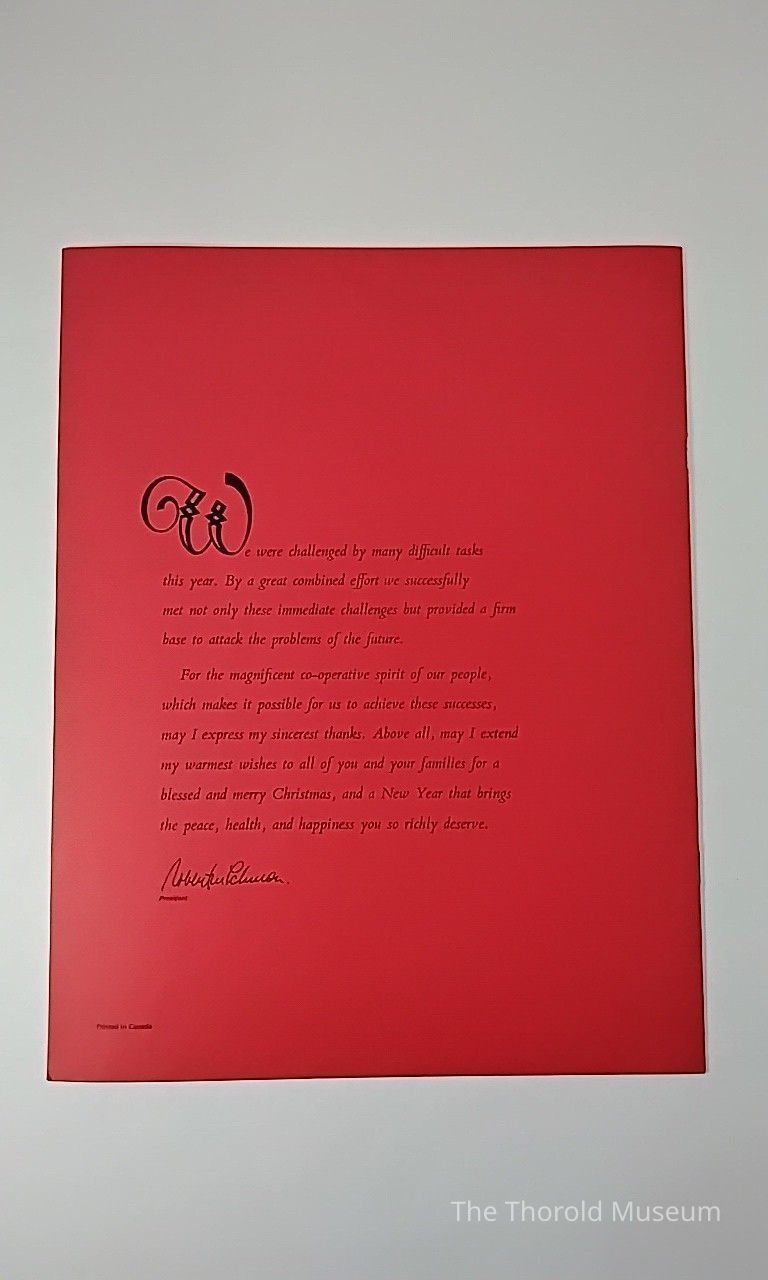 We were challenged by many difficult tasks
this year. By a great combined effort we successfully
met not only these immediate challenges but provided a firm
base to attack the problems of the future.
For the magnificent co-operative spirit of our people,
which makes it possible for us to achieve these successes,
may I express my sincerest thanks. Above all, may I extend
my warmest wishes to all of you and your families for a
blessed and merry Christmas, and a New Year that brings
the peace, health, and happiness you so richly deserve.
President
Printed in Canada
The Thorold Museum